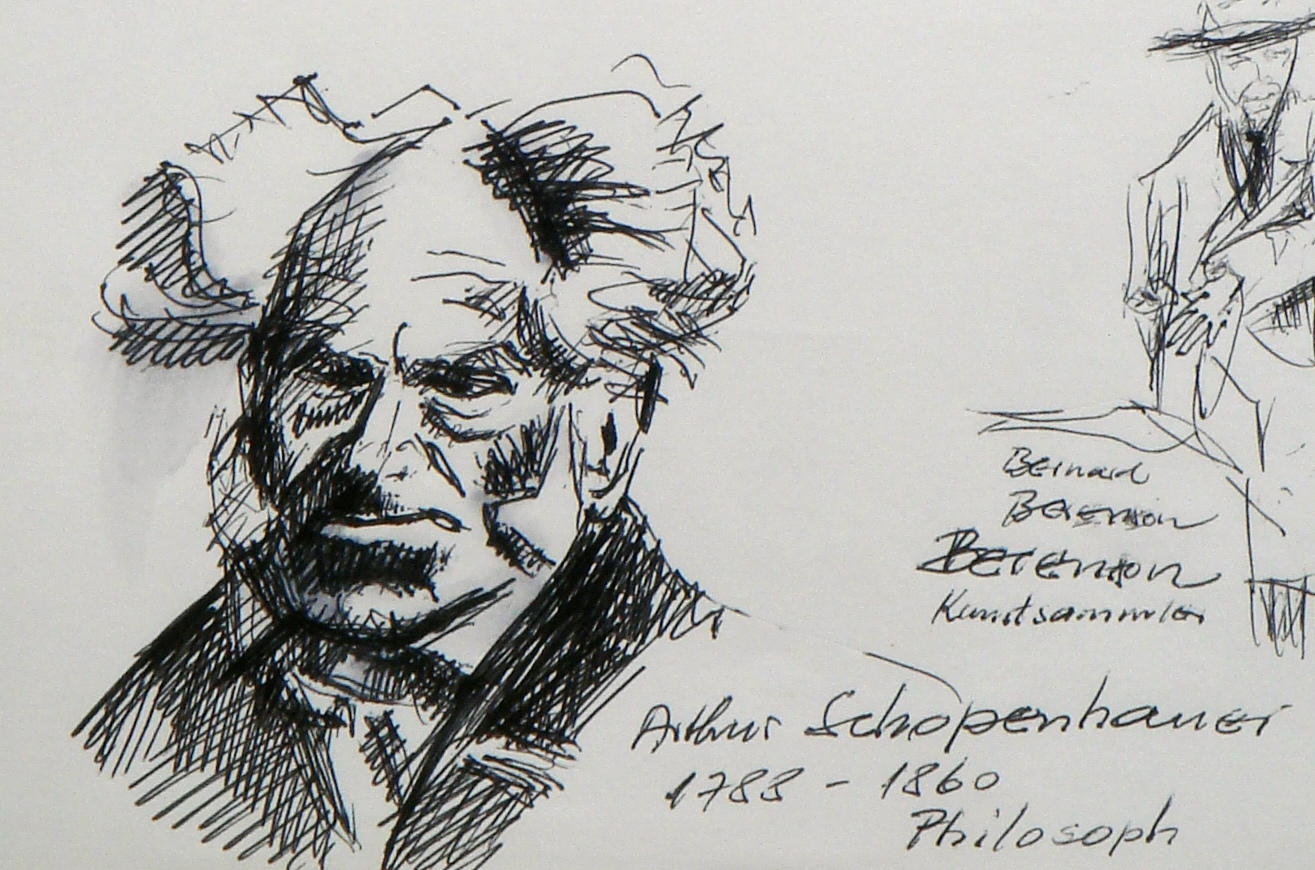 Bernard
Berenson
Berenson
Kunstsammler
Arthur Schopenhauer
1788 - 1860
Philosoph